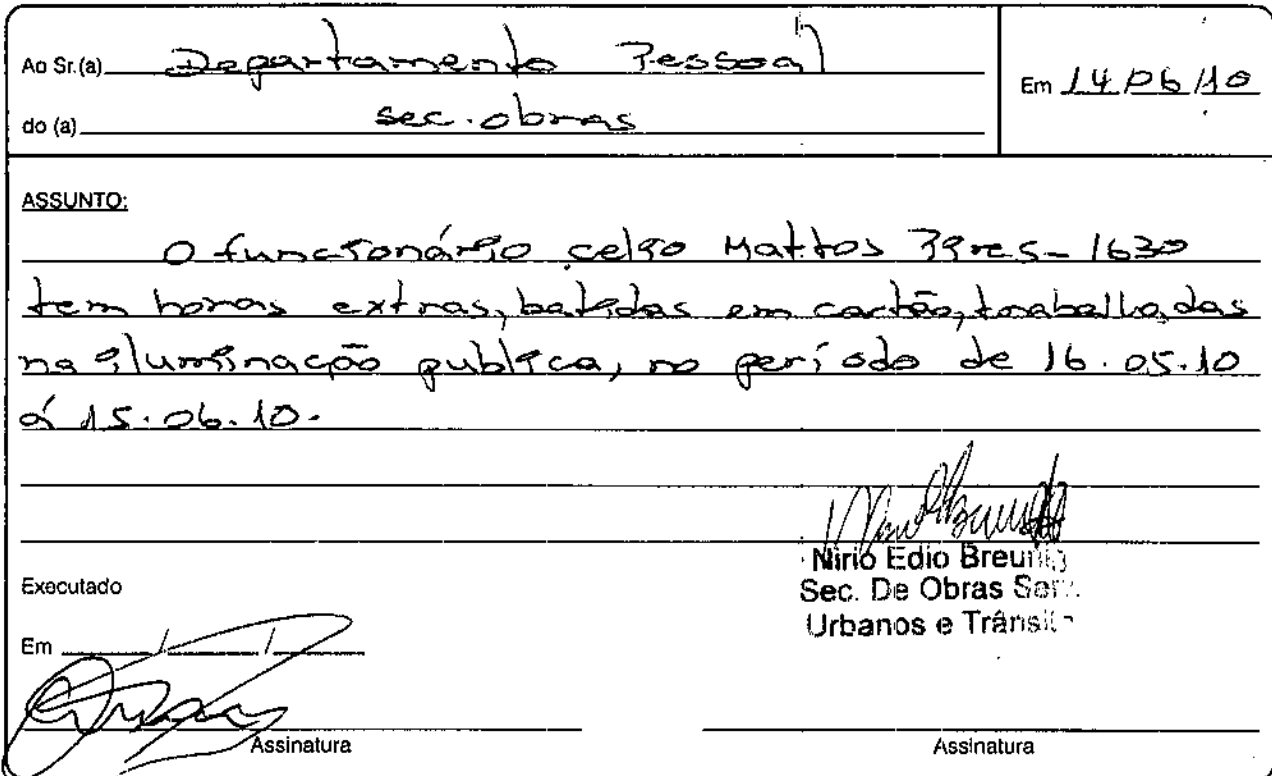 Ao Sr.(a) Departamento Pessoal
Em 14/06/10
do (a) sec. obras
ASSUNTO:
O funcionário celso Mattos Pires - 1630
tem horas extras, batidas em cartão, trabalhadas
na iluminação publica, no período de 16.05.10
á 15.06.10.
Nirio Edio
Sec. De Obras
Urbanos e
Executado
Em / /
Assinatura
Assinatura